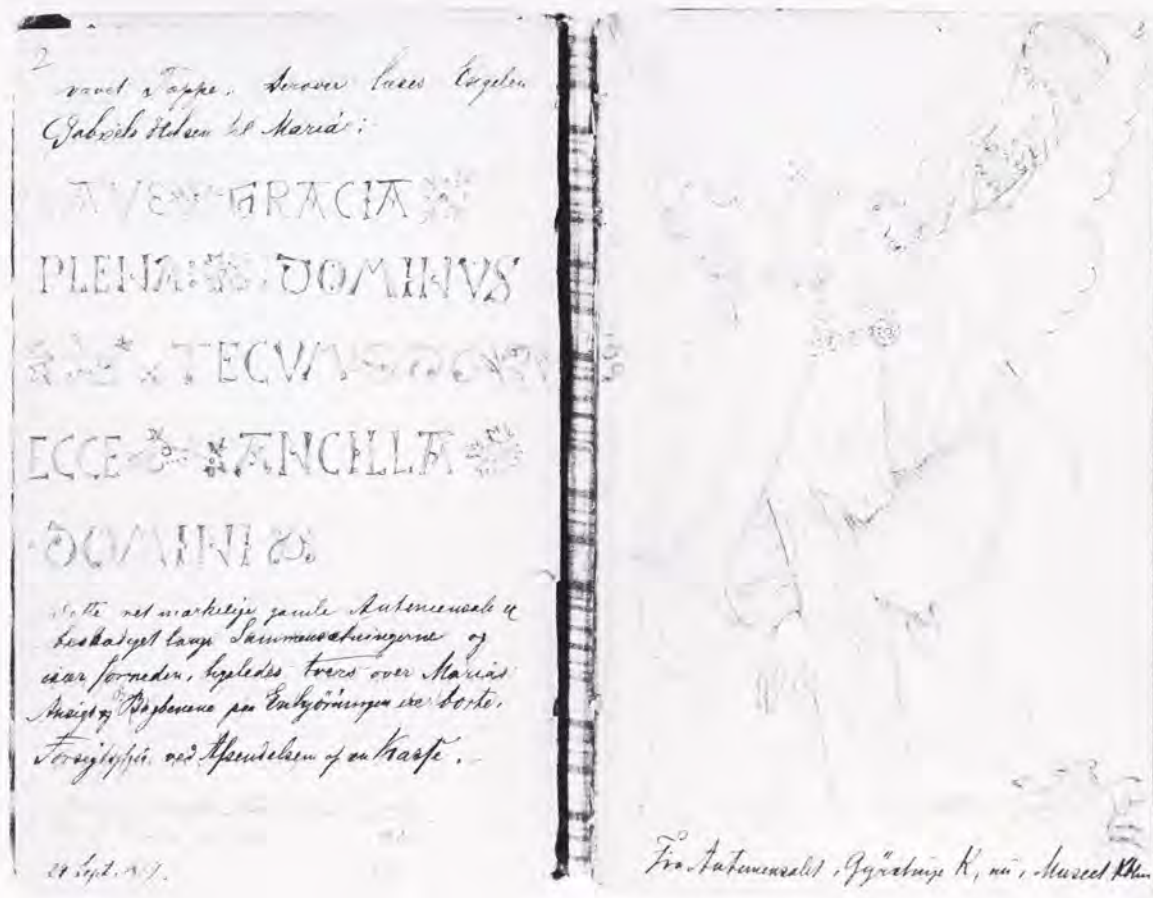 2
vævet Tæppe. Derover læses Engelen
Gabriels Hilsen til Maria:
AVE GRACIA
PLENA DOMINVS
TECVM
ECCE ANCILLA
DOMINI
Dette ret mærkelige gamle Antemensale er
beskadiget langs Sammensætningerne og
især forneden, ligeledes tvers over Marias
Ansigt og Bagbenene paa Enhjörningen ere borte.
ved Afsendelsen af en Kasse.
24 Sept.
3
Fra Antemensalet, K, nu, Museet Kbhn